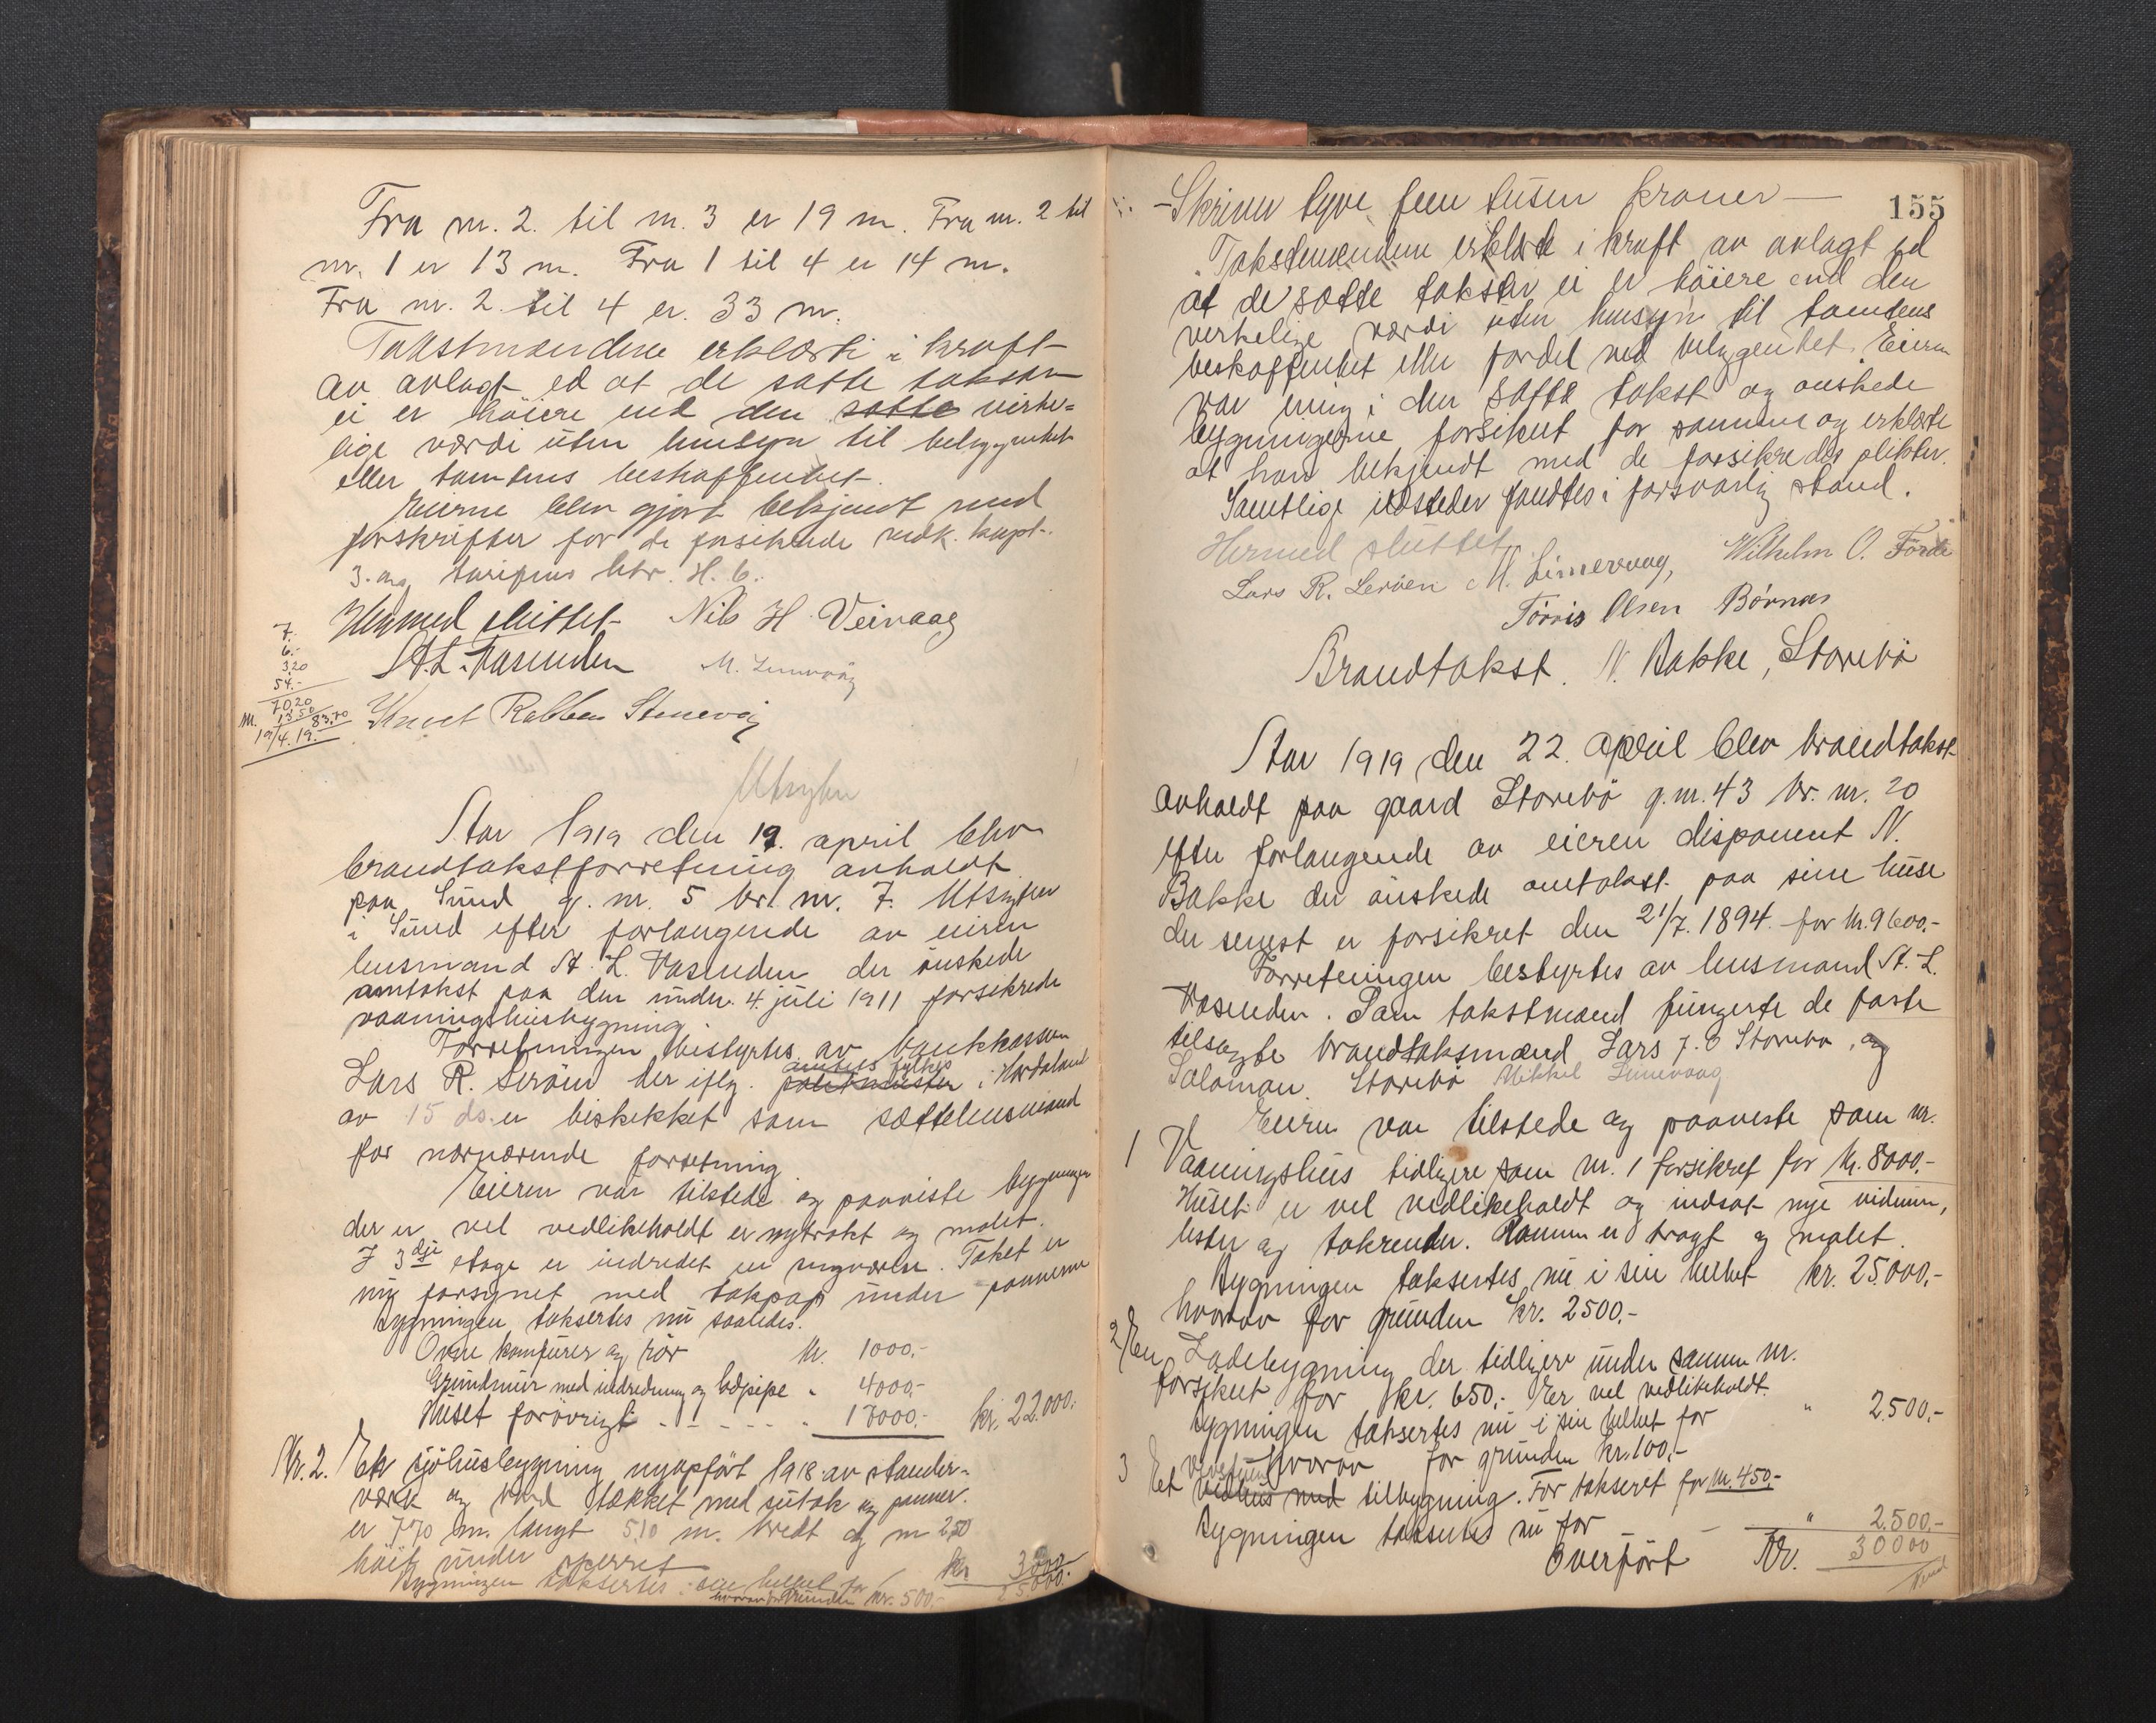 Fra nr. 2. til nr. 3 er 19 m. Fra nr. 2 til
nr. 1 er 13 m. Fra 1 til 4 er 14 m.
Fra nr. 2. til 4 er. 33 m.
Takstmændene erklærte i kraft
av avlagt ed at de satte takster
ei er høiere end den satte virke-
lige værdi uten hensyn til beliggenhet
eller tomtens beskaffenhet.
Eierne blev gjort bekjendt med
forskrifter for de forsikrede vedk. kapt.
3. og tarifens litr. H. 6.
Hermed sluttet Nils H. Veivaag
St. L. Vasenden M. Limevaag
Knut Rabben Stenevåg
7.
6.-
3.20
54.-
70,20
13.50
83.70
19/4.19.
Utsyten
Aar 1919 den 19. april blev
brandtakstforretning avholdt
paa Sund g. nr. 5 br. nr. 7. Utsyten
i Sund efter forlangende av eieren
lensmand St. L. Vasenden der ønskede
omtakst paa den under 4 juli 1911 forsikrede
vaaningshusbygning.
Forretningen bestyrtes av bankkasserer
Lars R. Lerøen der iflg. politmester i Hordaland
fylkes
av 15 ds. er beskikket som sættelensmand
for nærværende forretning
Eieren var tilstede og paaviste bygningen
der er vel vedlikeholdt er nytrokt og malet.
I 3dje etage er indredet en ny værelse. Taket er
nu forsynet med takpap under pannerne
Bygningen taksertes nu saaledes.
Ovne komfurer og rør kr. 1000.-
Grundmur med indredning og lodpipe " 4000,-
Huset forøvrigt - - - - - 17000.- kr. 22.000.
Nr. 2. En sjøhusbygning nyopført 1918 av stender-
værk og bord tækket med sutak og panner.
er 7.70 m. langt 5.10 m. bredt og m 2,50
høit under sperret
Bygningen taksertes i sin helhet for kr. 3000
hvorav for grunden kr. 500.- 25000.
155
- Skriver tyve fem tusen kroner -
Takstmændene erklærte i kraft av avlagt ed
at de satte takster ei er høiere end den
virkelige værdi uten hensyn til tomtens
beskaffenhet eller fordel ved beliggenhet. Eieren
var enig i den satte takst og ønskede
bygningerne forsikret for samme og erklærte
at han bekjendt med de forsikredes plikter.
Samtlige ildsteder fandtes i forsvarlig stand.
Hermed sluttet
Lars R. Lerøen M. Limevaag, Wilhelm O. Førde
Tørris Olsen Børnes
Brandtakst. N. Bakke, Storebø
Aar 1919 den 22. april blev brandtakst
avholdt paa gaard Storebø g.nr. 43 br. nr. 20
efter forlangende av eieren disponent N.
Bakke der ønskede omtakst paa sine huse
der senest er forsikret den 21/7. 1894 for kr. 9600.-
Forretningen bestyrtes av lensmand St. L.
Vasenden. Som takstmænd fungerte de faste
tilsagte brandtaksmænd Lars J. O Storebø, og
Salomon Storebø Mikkel Limevaag
Eieren var tilstede og paaviste som nr.
1 Vaaningshus tidligere som nr. 1 forsikret for kr. 8000.-
Huset er vel vedlikeholdt og indsat nye vinduer,
lister og takrender. Rommene er trogt og malet.
Bygningen taksertes nu i sin helhet kr. 25.000.-
hvorav for grunden kr. 2500.-
2 En Ladebygning der tidligere under samme nr.
forsikret for kr. 650.- Er vel vedlikeholdt.
Bygningen taksertes nu i sin helhet for " 2.500,-
hvorav for grunden kr. 100,-
3 Et vedhus med tilbygning. Før taksert for kr. 450.-
Bygningen taksertes nu for " 2.500,-
Overført Kr. 30000
Vend